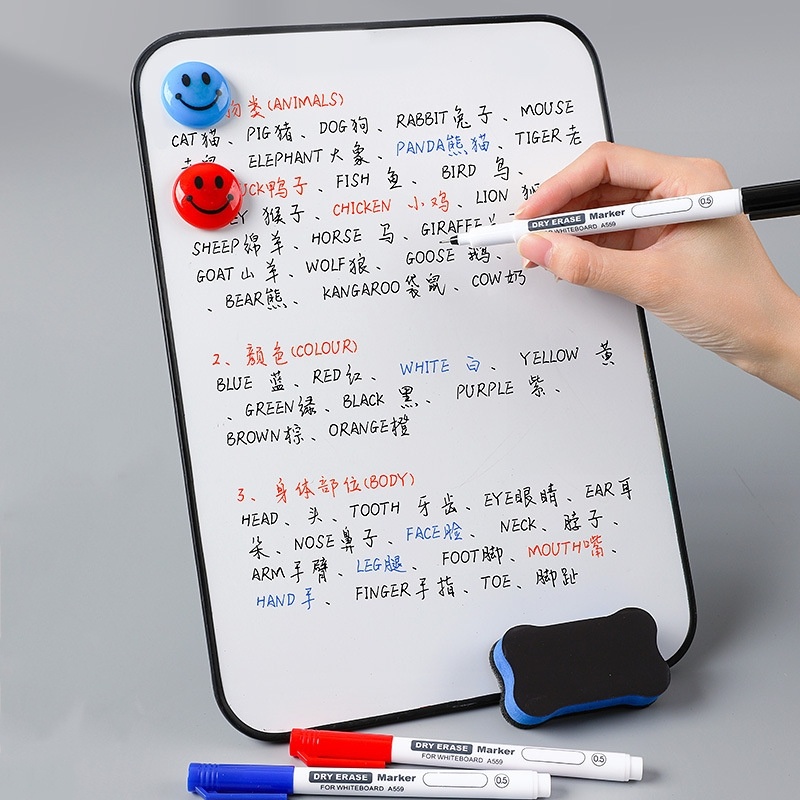 物类(ANIMALS)
CAT猫、PIG猪、DOG狗、RABBIT兔子、MOUSE
ELEPHANT大象、PANDA熊猫、TIGER老
鸭子、FISH 鱼、BIRD 鸟、
猴子、CHICKEN 小鸡、LION
SHEEP绵羊、HORSE 马、GIRAFFE
GOAT山羊、WOLF狼、GOOSE 鹅、
、BEAR熊、KANGAROO袋鼠、COW奶
2、颜色(COLOUR)
BLUE 蓝、RED红、WHITE 白、YELLOW 黄
、GREEN绿、BLACK 黑、PURPLE 紫、
BROWN棕、ORANGE橙
3、身体部位(BODY)
HEAD、头、TOOTH 牙齿、EYE眼睛、EAR耳
朵、NOSE鼻子、FACE脸、NECK、脖子、
ARM手臂、LEG腿、FOOT脚、MOUTH嘴、
HAND手、FINGER手指、TOE、脚趾
DRY ERASE Marker 0.5
FOR WHITEBOARD A559
DRY ERASE Marker 0.5
FOR WHITEBOARD A559
DRY ERASE Marker 0.5
FOR WHITEBOARD A559